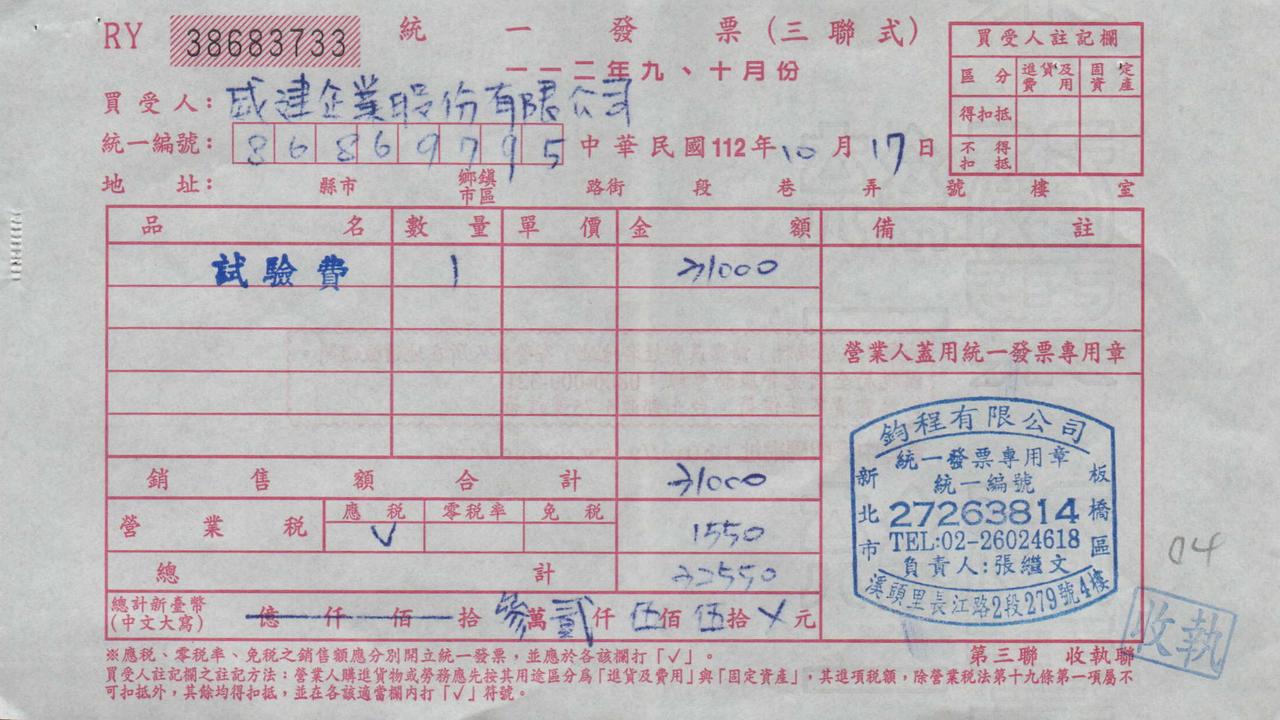 RY 38683733 統一發票(三聯式)
一一二年九、十月份
買受人註記欄
區分 進貨及費用 固定資產
得扣抵
不得扣抵
買受人：盛建企業股份有限公司
統一編號：86869795 中華民國112年10月17日
地址： 縣市 鄉鎮市區 路街 段 巷 弄 號 樓 室
品名 數量 單價 金額 備註
試驗費 1 31000
營業人蓋用統一發票專用章
銷售額合計 31000
營業稅 應稅 零稅率 免稅
√ 1550
總計 32550
總計新臺幣(中文大寫) 億仟佰拾參萬貳仟伍佰伍拾X元
鈞程有限公司
統一發票專用章
統一編號
27263814
TEL:02-26024618
負責人:張繼文
新北市 板橋區
溪頭里長江路2段279號4樓
04
收執
※應稅、零稅率、免稅之銷售額應分別開立統一發票，並應於各該欄打「√」。
第三聯 收執聯
買受人註記欄之註記方法：營業人購進貨物或勞務應先按其用途區分為「進貨及費用」與「固定資產」，其進項稅額，除營業稅法第十九條第一項屬不
可扣抵外，其餘均得扣抵，並在各該適當欄內打「√」符號。